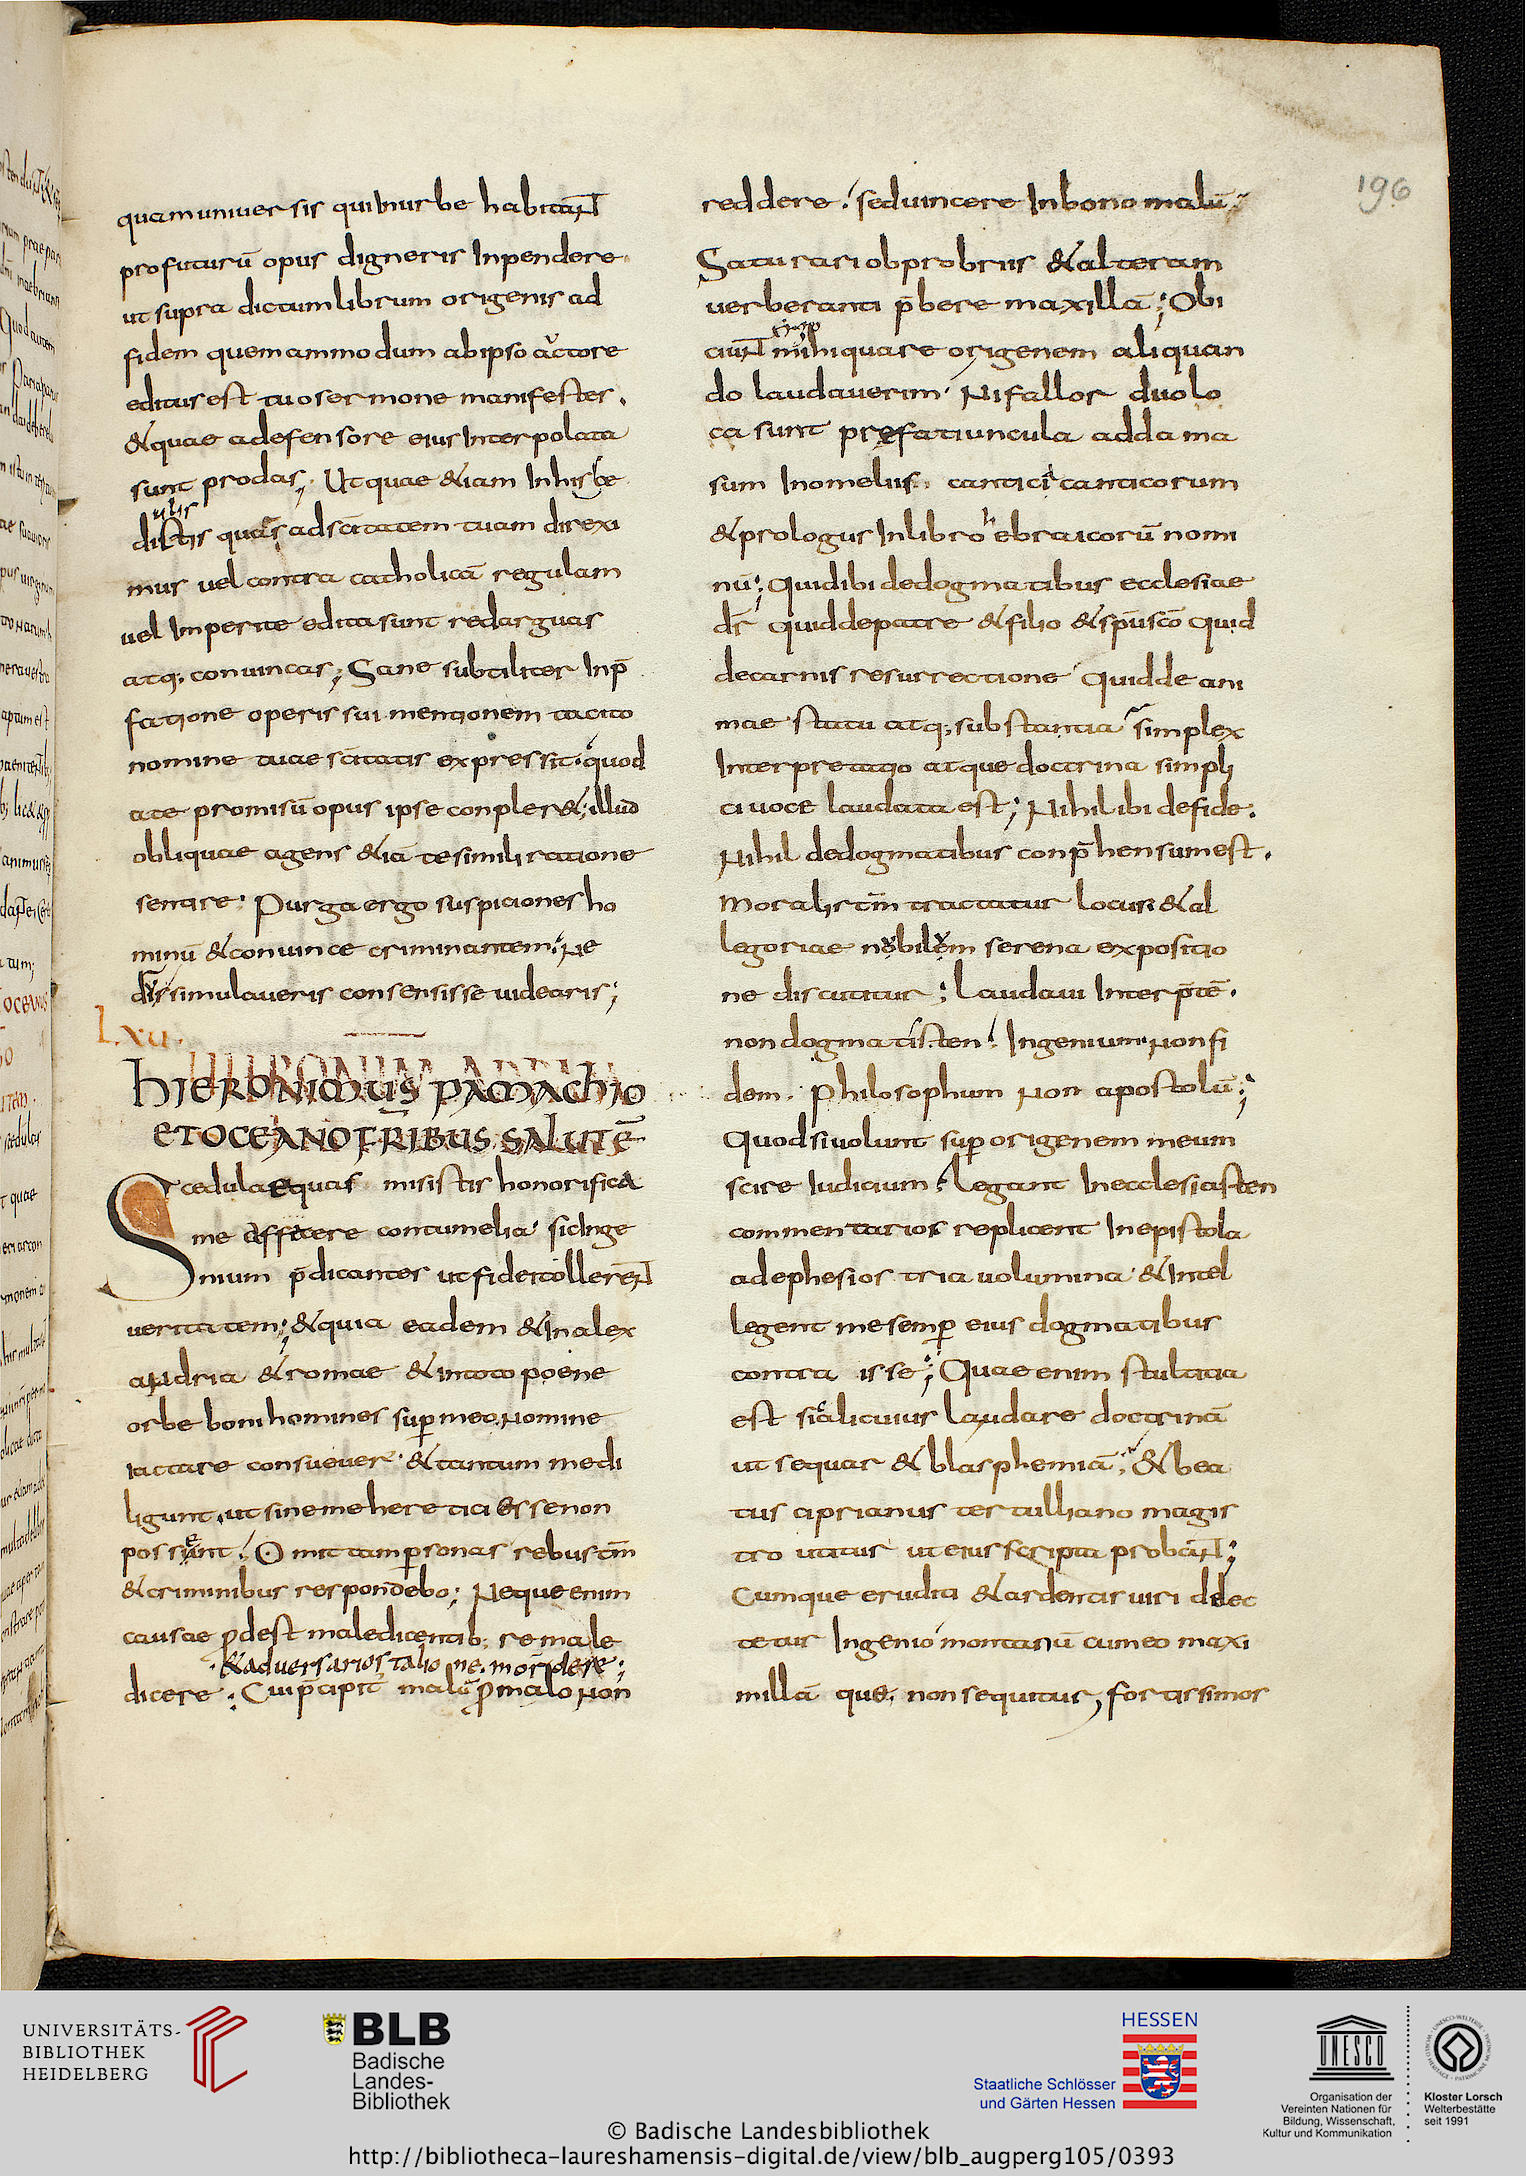 quam universis qui inurbe habitant
profuturū opus digneris Inpendere
ut supra dictum librum origenis ad
fidem quemammodum abipso auctore
editus est tuo sermone manifestes.
&quae adefensore eius Interpolata
sunt prodas; Ut quae &iam Inhis sce
ulis
dictis quas ad scitatem tuam direxi
mus vel contra catholicā regulam
vel Imperite edita sunt redarguas
atq; convincas; Sane subtiliter Inp̄
fatione operis sui mentionem tacito
nomine tuae scitatis expressit quod
ate promisū opus ipse conpler&; illud
obliquae agens &iā te simili ratione
sentire. Purga ergo suspiciones ho
minū &convince criminantem; Ne
dissimulaveris consensisse videaris;
Lxii.
hieronimus pamachio
et oceano fribus salutē
Scedulae quas misistis honorifica
me affecere contumelia sic Inge
nium p̄dicantes ut fidei tollerent
veritatem; &quia eadem &In alex
andria &romae &in toto poene
orbe boni homines sup meo Nomine
iactare consuever &tantum me di
ligunt ut sineme heretici esse non
possent. Omittam psonas rebus tm̄
&criminibus respondebo; Neque enim
causae pdest maledicentib; remale
&adversarios talione mordere;
dicere. Cui p̄cipit malū p malo Non
reddere. sed vincere In bono malū;
Saturari obprobriis &alteram
verberanti p̄bere maxillā; Obi
ciunt mihi quare origenem aliquan
do laudaverim Ni fallor duo lo
ca sunt prefatiuncula ad dama
sum In omeliis cantici canticorum
&prologus In libro hebraicorū nomi
nū; Quid ibi de dogmatibus ecclesiae
dr̄ Quid de patre &filio &spū scō Quid
de carnis resurrectione Quid de ani
mae statu atq; substantia simplex
Interpretatio atque doctrina simpli
ci voce laudata est; Nihil ibi de fide.
Nihil de dogmatibus conp̄hensum est.
Moralis tm̄ tractatur locus &al
legoriae nobilem serena expositio
ne discutitur; Laudavi Interp̄tē.
non dogmatisten. Ingenium Non fi
dem. Philosophum Non apostolū;
Quod si volunt sup origenem meum
scire Iudicium. Legant In ecclesiasten
commentarios replicent In epistola
ad ephesios tria volumina &Intel
legent me semp eius dogmatibus
contra isse; Quae enim stultitia
est si alicuius laudare doctrinā
ut sequar &blasphemiā; &bea
tus ciprianus tertulliano magis
tro utitur ut eius scripta probant;
Cumque eruditi &ardentis viri delec
tetur Ingenio montanū cum eo maxi
millā que. non sequitur, fortissimos
196
UNIVERSITÄTS-
BIBLIOTHEK
HEIDELBERG
BLB
Badische
Landes-
Bibliothek
HESSEN
Staatliche Schlösser
und Gärten Hessen
UNESCO
Organisation der
Vereinten Nationen für
Bildung, Wissenschaft,
Kultur und Kommunikation
Kloster Lorsch
Welterbestätte
seit 1991
© Badische Landesbibliothek
http://bibliotheca-laureshamensis-digital.de/view/blb_augperg105/0393